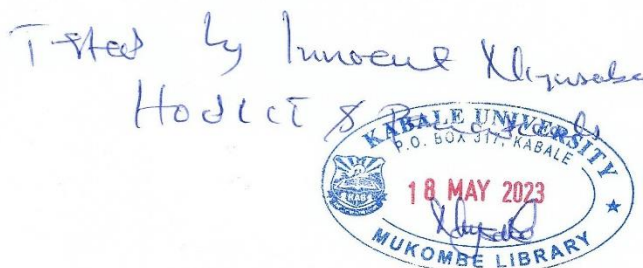 Tested by Innocent Niyusaba
HOD ICT &
KABALE UNIVERSITY
P.O. BOX 317, KABALE
18 MAY 2023
MUKOMBE LIBRARY